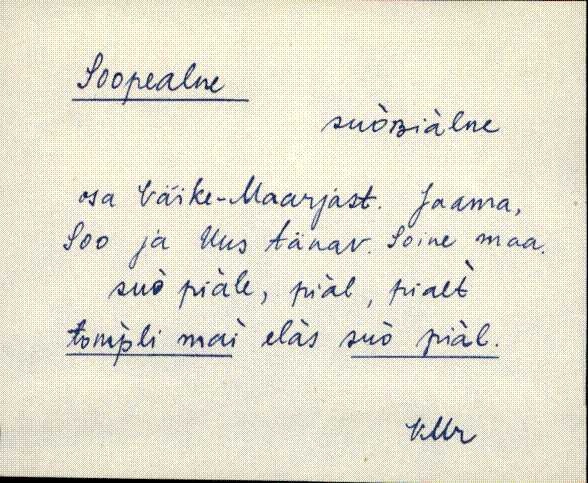 Soopealne
suòʙiàlne
osa Väike-Maarjast. Jaama,
Soo ja Uus tänav. Soine maa.
suò piàle, piàl, pialt̀
tomp̀li mai elàs suò piàl.
VMr